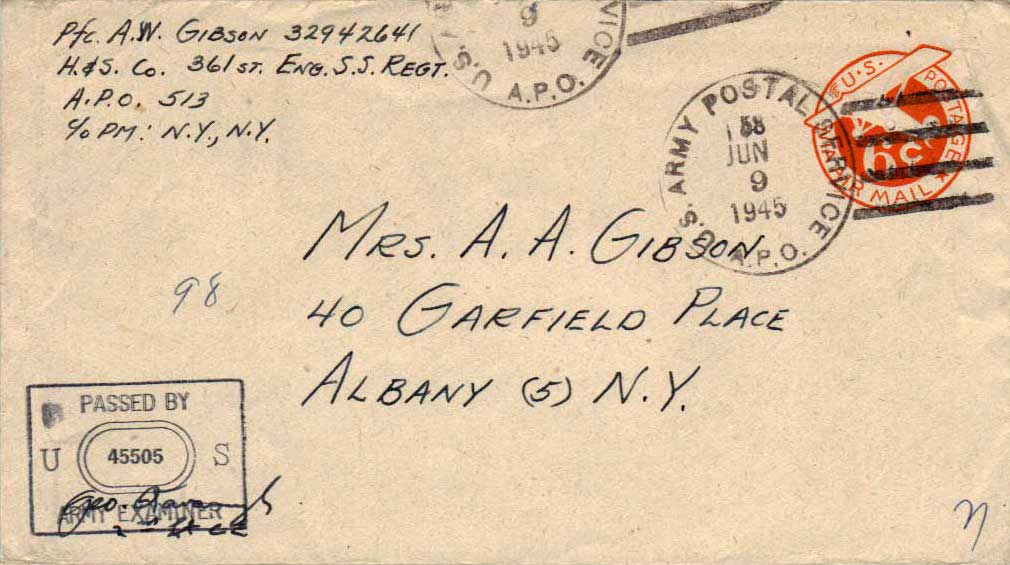 Pfc. A.W. GIBSON 32942641
H.&S. Co. 361ST. ENG. S.S. REGT.
A.P.O. 513
c/o PM: N.Y., N.Y.
9
1945
U.S. A VICE
A.P.O.
U.S. ARMY POSTAL SERVICE
JUN
9
1945
A.P.O.
U.S. POSTAGE
6c
VIA AIR MAIL
MRS. A. A. GIBSON
40 GARFIELD PLACE
ALBANY (5) N.Y.
98
PASSED BY
U 45505 S
ARMY EXAMINER
Geo.